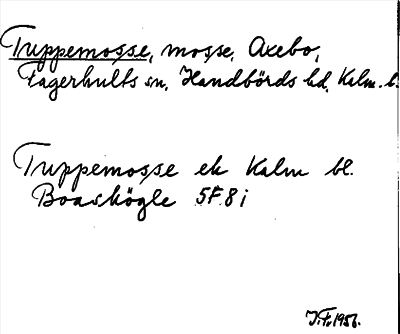 Tuppemosse, mosse, Axebo,
Fagerhults sn, Handbörds hd, Kalm. l.
Tuppemosse ek Kalm bl.
Boaskögle 5F8i
J.F. 1956.